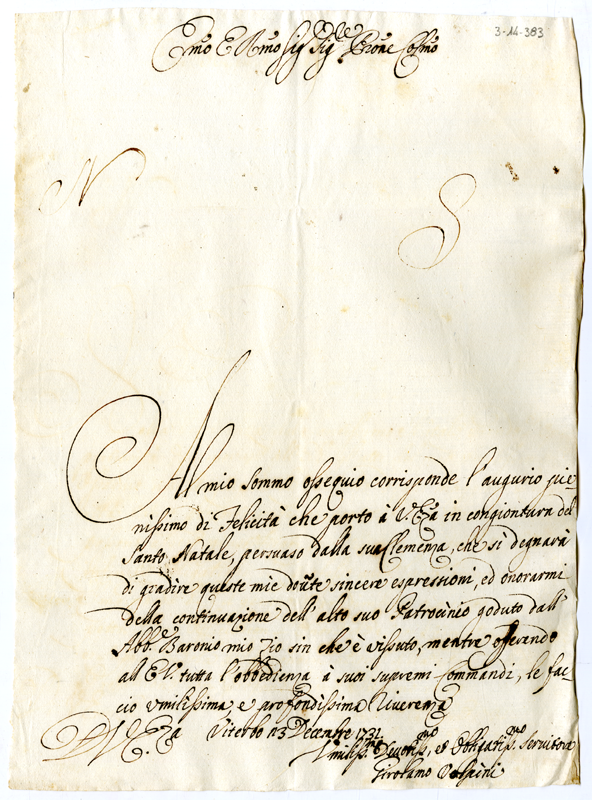 3-14-383
Em̃o E Rm̃o Sig Sig P̃rone Col̃mo
N S
Al mio sommo ossequio corrisponde l'augurio pie=
nissimo di Felicità che porto à V.Eza in congiontura del
Santo Natale, persuaso dalla sua Clemenza, che si degnarà
di gradire queste mie doṽte sincere espressioni, ed onorarmi
della continuazione dell'alto suo Patrocinio goduto dall'
Abb.e Baronio mio Zio sin che è vissuto, mentre offerendo
all'E.V. tutta l'obbedienza à suoi supremi Commandi, le fac=
cio vmilissima e profondissima Riverenza
D V.Eza Viterbo 23 Decembre 1731.
Vmiliss.mo Devotiss.mo et Obligatiss.mo Servitore
Girolamo